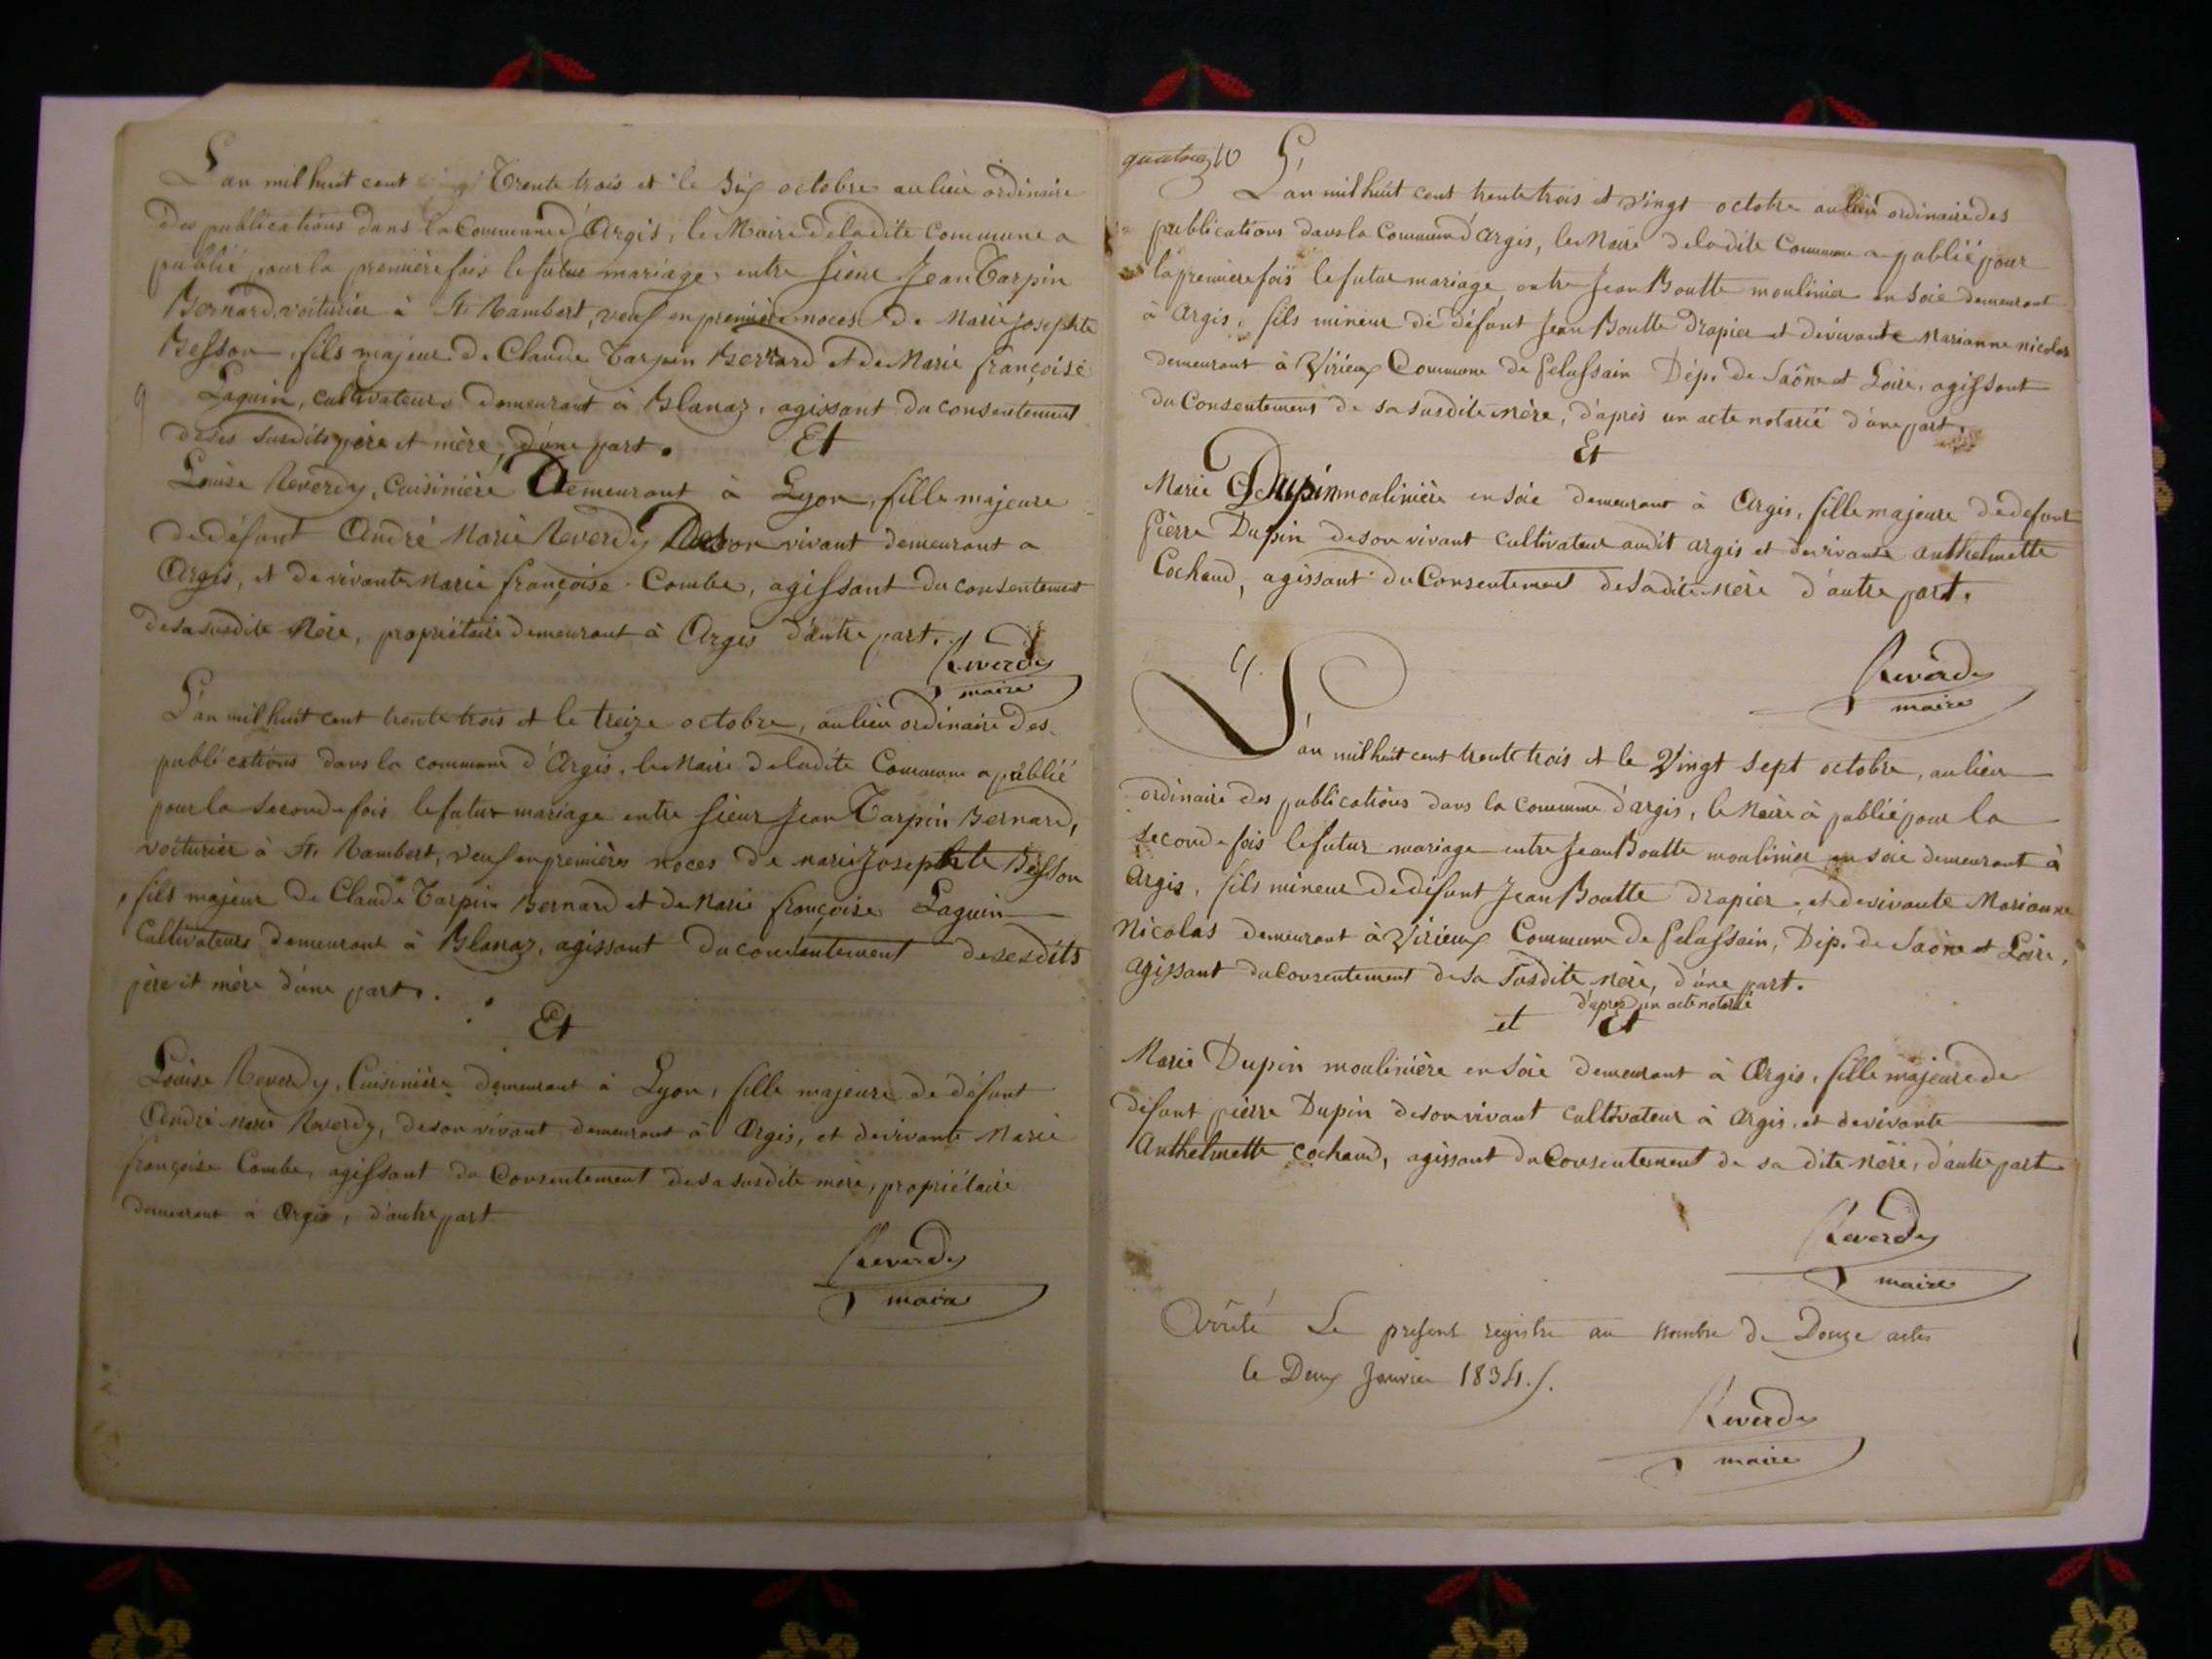 L'an mil huit cent Trente trois et le Six octobre au lieu ordinaire
Des publications dans la Commune d'Argis, le Maire de la dite Commune a
publié pour la première fois le futur mariage entre sieur Jean Tarpin
Bernard voiturier à St. Rambert, veuf en première noces de Marie Josephte
Besson, fils majeur de Claude Tarpin Bernard et de Marie françoise
9 Laguin, cultivateurs demeurant à Blanaz, agissant du consentement
de ses susdits père et mère, d'une part. Et
Louise Reverdy, Cuisinière Demeurant à Lyon, fille majeure
de défunt André Marie Reverdy De son vivant demeurant a
Argis, et de vivante Marie françoise Combe, agissant du consentement
de sa susdite Mère, propriétaire demeurant à Argis d'autre part.
Reverdy
maire
L'an mil huit cent trente trois et le treize octobre, au lieu ordinaire des
publications dans la commune d'Argis, le Maire de ladite Commune a publié
pour la seconde fois le futur mariage entre sieur Jean Tarpin Bernard,
voiturier à St. Rambert, veuf en premières noces de marie Josephte Besson
, fils majeur de Claude Tarpin Bernard et de Marie françoise Laguin
Cultivateurs demeurant à Blanaz, agissant du consentement de ses dits
père et mère d'une part.
Et
Louise Reverdy, Cuisinière demeurant à Lyon, fille majeure de défunt
André Marie Reverdy, de son vivant demeurant à Argis, et de vivante Marie
françoise Combe, agissant du Consentement de sa susdite mère, propriétaire
demeurant à Argis, d'autre part
Reverdy
maire
10 L'
L'an mil huit cent trente trois et vingt octobre au lieu ordinaire des
publications dans la Commune d'Argis, le Maire de la dite Commune a publié pour
la première fois le futur mariage entre Jean Boutte moulinier en soie demeurant
à Argis, fils mineur de défunt Jean Boutte Drapier et de vivante Marianne Nicolas
demeurant à Virieux Commune de Pelussain Dép. de Saône et Loire, agissant
du Consentement de sa susdite mère, d'après un acte notarié d'une part.
Et
Marie Dupin moulinière en soie demeurant à Argis, fille majeure de défunt
Pierre Dupin de son vivant cultivateur audit argis et de vivante anthelmette
Cochand, agissant du Consentement de sadite mère d'autre part.
Reverdy
maire
L'an mil huit cent trente trois et le Vingt Sept octobre, au lieu
ordinaire des publications dans la commune d'argis, le Maire à publié pour la
seconde fois le futur mariage entre Jean Boutte moulinier en soie demeurant à
Argis, fils mineur de défunt Jean Boutte Drapier, et de vivante Marianne
Nicolas demeurant à Virieux Commune de Pelassain, Dép. de Saône et Loire,
agissant du Consentement de sa susdite Mère, d'une part.
d'après un acte notarié
et Et
Marie Dupin moulinière en soie demeurant à Argis, fille majeure de
défunt pierre Dupin de son vivant cultivateur à Argis, et de vivante
Anthelmette Cochand, agissant du Consentement de sa dite Mère, d'autre part
Reverdy
maire
Arrêté Le present registre au nombre de Douze actes
le Deux Janvier 1834.
Reverdy
maire